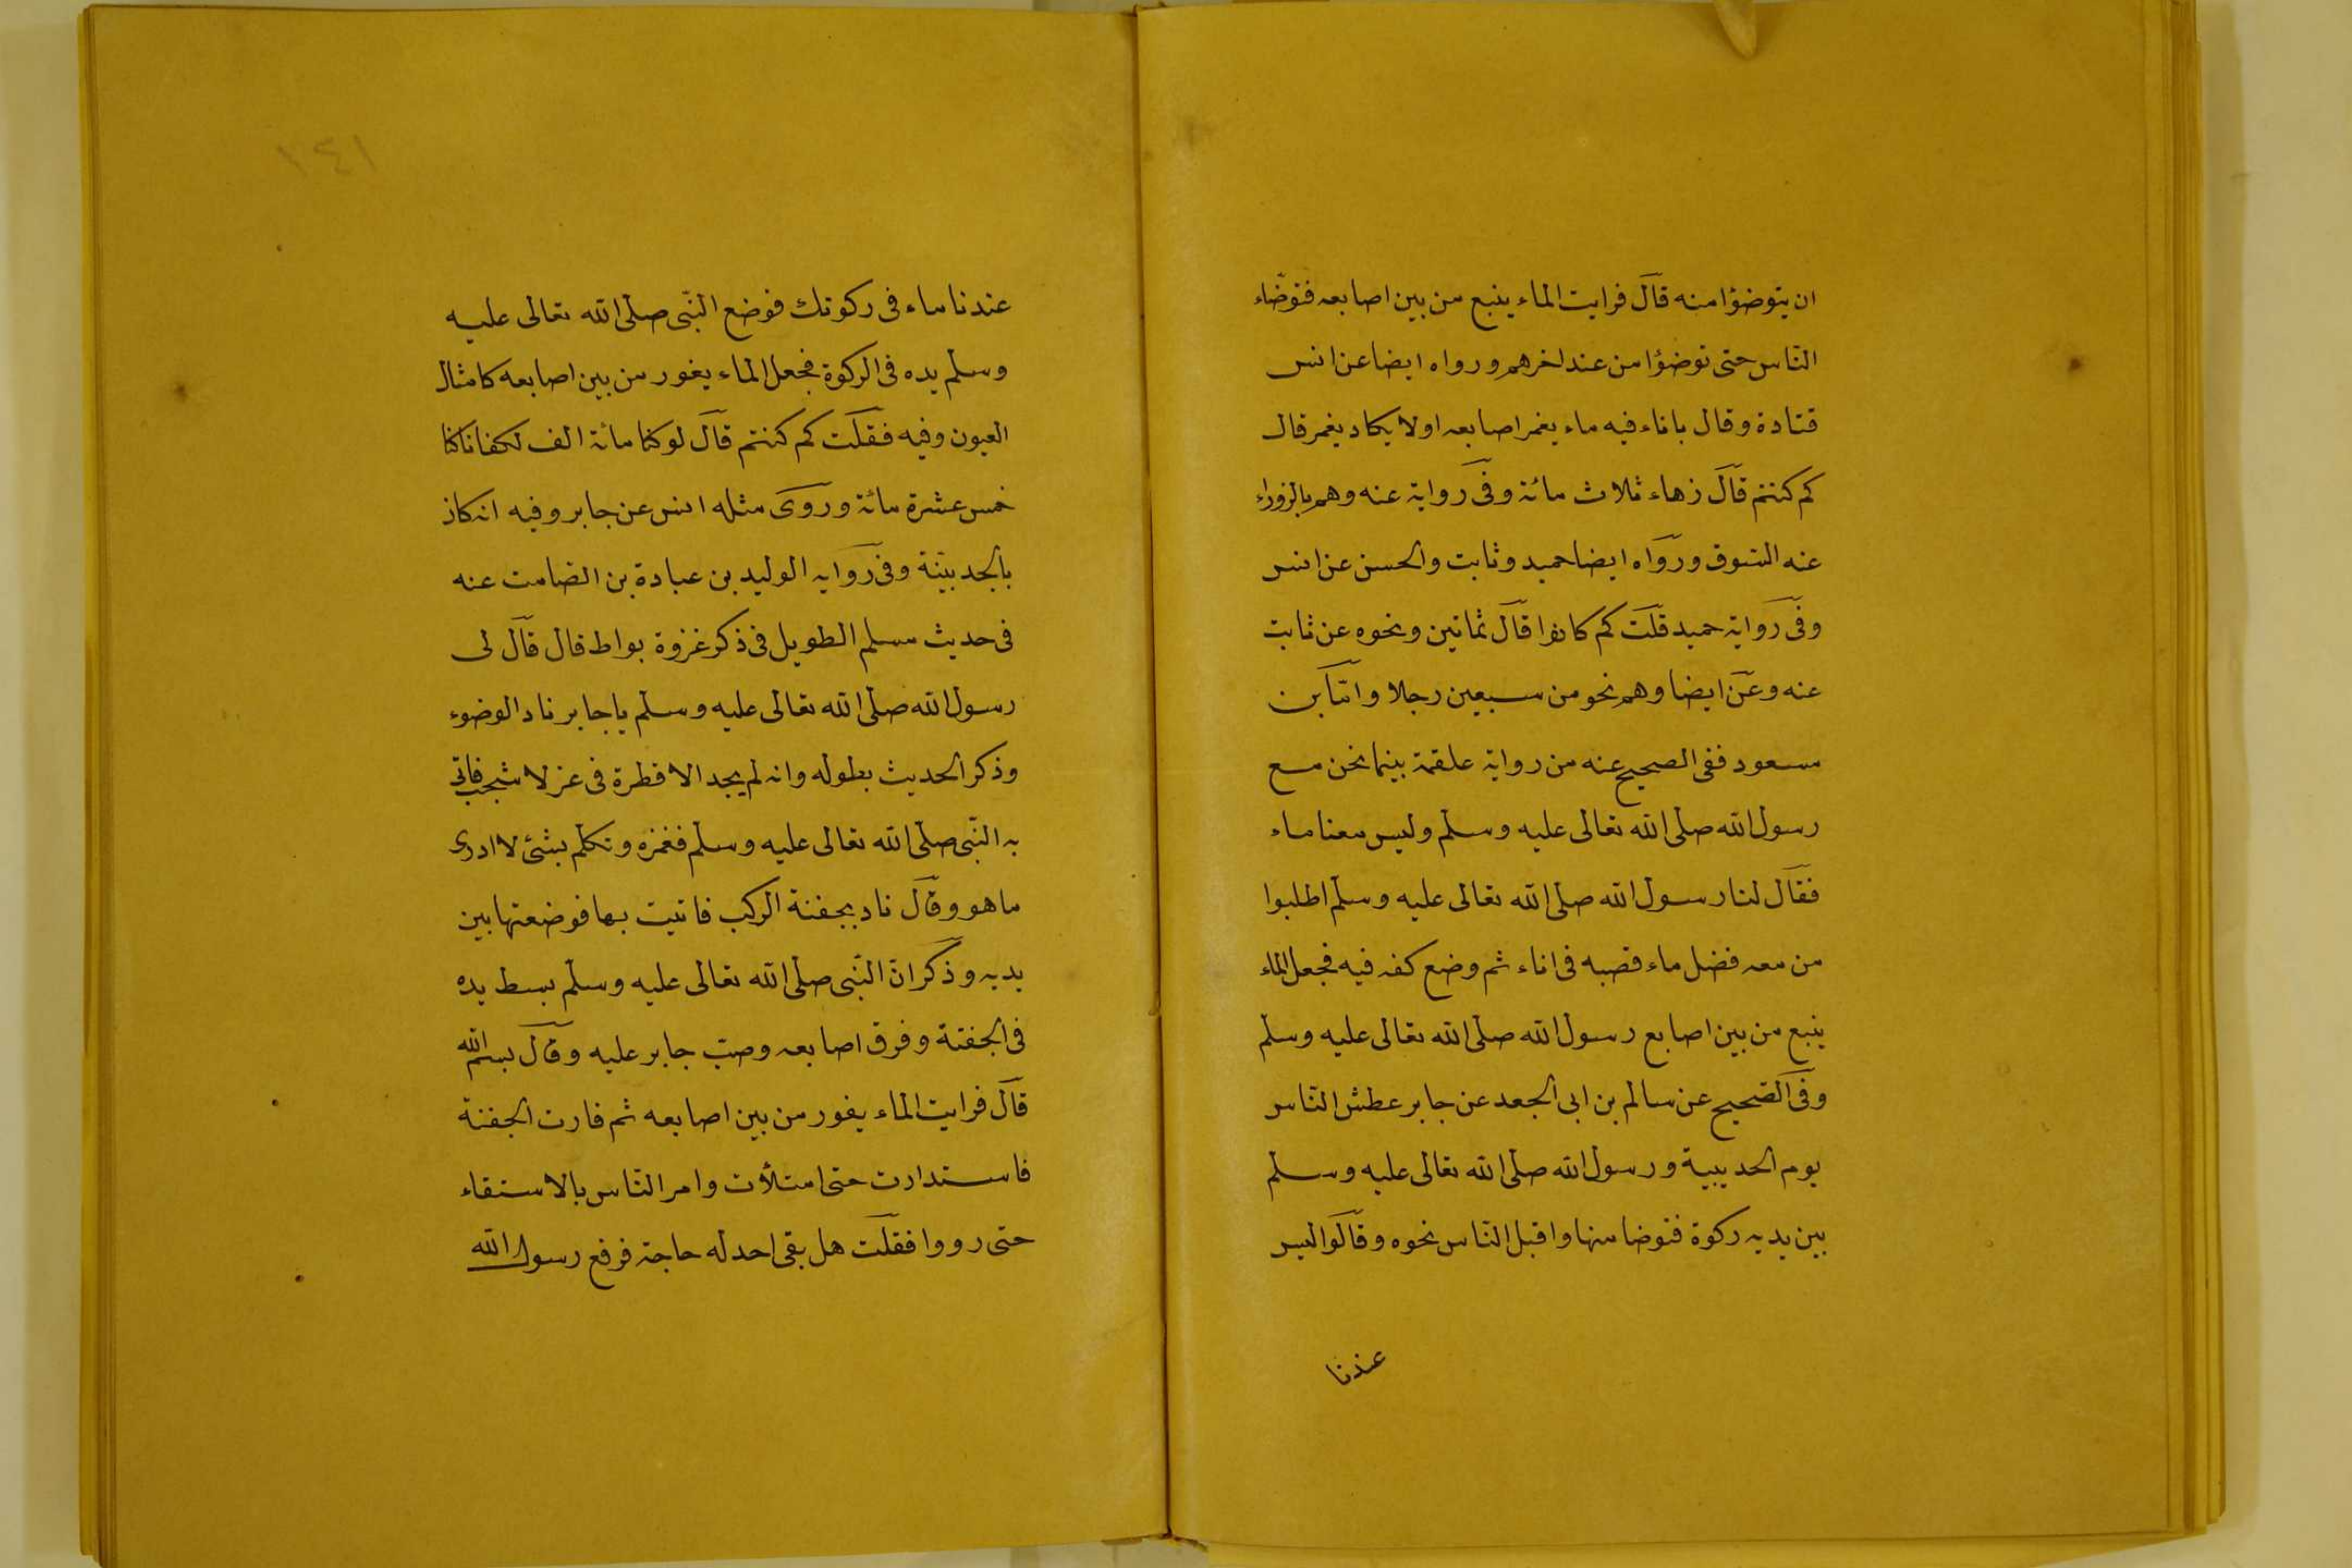 ان يتوضؤا منه قال فرايت الماء ينبع من بين اصابعه فتوضاء
الناس حتى توضؤا من عند اخرهم ورواه ايضا عن انس
قتادة وقال باناء فيه ماء يغمر اصابعه اولا يكاد يغمر قال
كم كنتم قال زهاء ثلاث مائة وفى رواية عنه وهم بالزوراء
عنه السوق ورواه ايضا حميد وثابت والحسن عن انس
وفى رواية حميد قلت كم كانوا قال ثمانين ونحوه عن ثابت
عنه وعن ايضا وهم نحو من سبعين رجلا واما بن
مسعود ففى الصحيح عنه من رواية علقمة بينما نحن مع
رسول الله صلى الله تعالى عليه وسلم وليس معنا ماء
فقال لنا رسول الله صلى الله تعالى عليه وسلم اطلبوا
من معه فضل ماء فصبه فى اناء ثم وضع كفه فيه فجعل الماء
ينبع من بين اصابع رسول الله صلى الله تعالى عليه وسلم
وفى الصحيح عن سالم بن ابى الجعد عن جابر عطش الناس
يوم الحديبية ورسول الله صلى الله تعالى عليه وسلم
بين يديه ركوة فتوضا منها واقبل الناس نحوه وقالوا ليس
عندنا
١٤١
عندنا ماء فى ركوتك فوضع النبى صلى الله تعالى عليه
وسلم يده فى الركوة فجعل الماء يغور من بين اصابعه كامثال
العيون وفيه فقلت كم كنتم قال لو كنا مائة الف لكفانا كنا
خمس عشرة مائة وروى مثله انس عن جابر وفيه انكان
بالحديبية وفى رواية الوليد بن عبادة بن الصامت عنه
فى حديث مسلم الطويل فى ذكر غزوة بواط قال قال لى
رسول الله صلى الله تعالى عليه وسلم يا جابر ناد الوضوء
وذكر الحديث بطوله وانه لم يجد الا قطرة فى عزلا شجب فاتى
به النبى صلى الله تعالى عليه وسلم فغمزه وتكلم بشئ لا ادرى
ما هو وقال ناد بجفنة الركب فاتيت بها فوضعتها بين
يديه وذكر ان النبى صلى الله تعالى عليه وسلم بسط يده
فى الجفنة وفرق اصابعه وصب جابر عليه وقال بسم الله
قال فرايت الماء يفور من بين اصابعه ثم فارت الجفنة
فاستدارت حتى امتلأت وامر الناس بالاستقاء
حتى رووا فقلت هل بقى احد له حاجة فرفع رسول الله